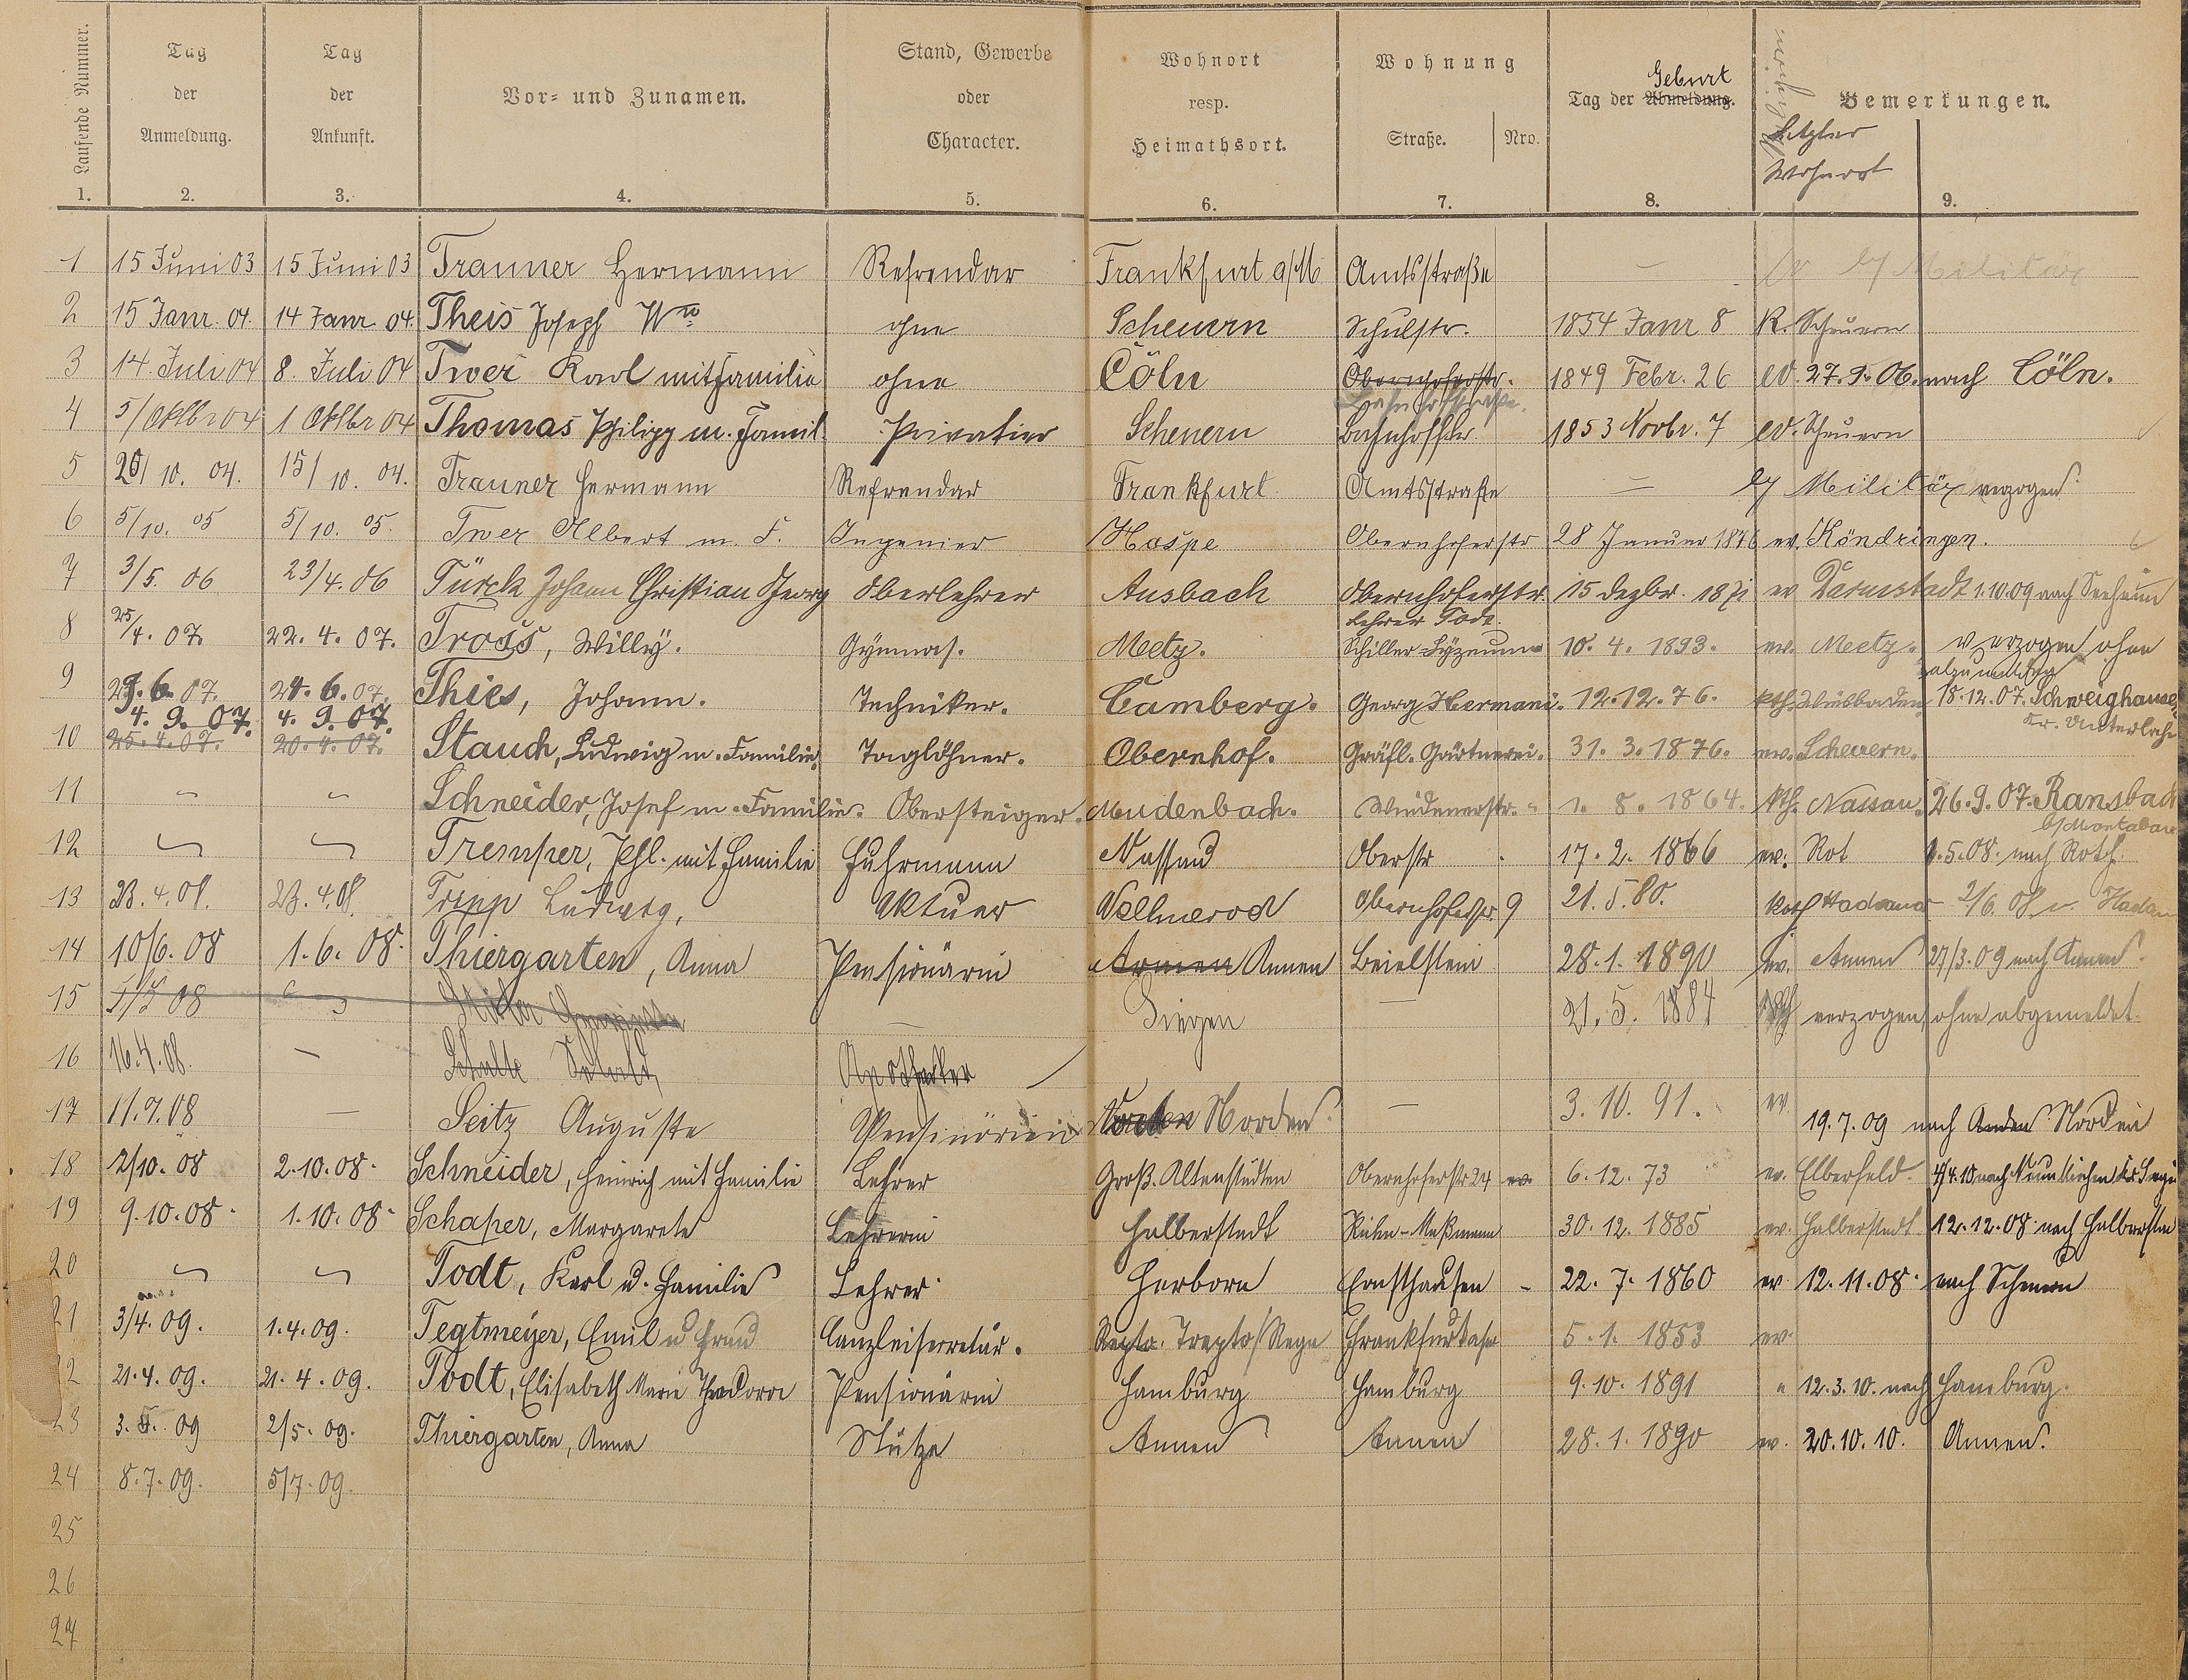 Laufende Nummer. Tag der Anmeldung. Tag der Ankunft. Vor- und Zunamen. Stand, Gewerbe oder Character. Wohnort resp. Heimathsort. Wohnung Straße. Nro. Tag der Abmeldung. Geburt Bemerkungen. Letzter Wohnort
1. 2. 3. 4. 5. 6. 7. 8. 9.
1 15 Juni 03 15 Juni 03 Trauner Hermann Refrendar Frankfurt a/M Amtsstraße — Militär
2 15 Janr. 04. 14 Janr 04. Theis Joseph Ww ohne Scheuern Schulstr. 1854 Janr 8 K. Scheuern
3 14. Juli 04 8. Juli 04 Twer Karl mit Familie ohne Cöln Obernhoferstr. Bahnhofstraße. 1849 Febr. 26 ev. 27.9.06. nach Cöln.
4 5/Oktbr 04 1 Oktbr 04 Thomas Philipp m. Famil. Privatier Scheuern Bahnhofstr. 1853 Novbr. 7 ev. Scheuern
5 20/10. 04. 15/10. 04. Trauner Hermann Refrendar Frankfurt Amtsstraße — Militär verzogen
6 5/10. 05 5/10. 05. Twer Albert m. F. Ingenier Haspe Obernhoferstr 28 Januar 1876 ev. Köndringen.
7 3/5. 06 23/4. 06 Türck Johann Christian Georg Oberlehrer Ansbach Obernhoferstr. 15 Dezbr. 1871 ev Darmstadt 1.10.09 nach Seeheim
8 25/4. 07. 22. 4. 07. Tross, Willy. Gymnas. Metz. Lehrer Todt. Schiller Lyzeum 10. 4. 1893. ev. Metz. verzogen ohne abzumelden
9 29. 6. 07. 24. 6. 07. Thies, Johann. Techniker. Camberg. Georg Hermani. 12.12.76. kth. Wiesbaden. 18.12.07. Schweighausen Kr. Unterlahn
10 4. 9. 07. 25.4.07. 4. 9. 07. 20.4.07. Stauch, Ludwig m. Familie. Taglöhner. Obernhof. Gräfl. Gärtnerei. 31. 3. 1876. ev. Scheuern.
11 – – Schneider, Josef m. Familie. Obersteiger. Mudenbach. Windenerstr. 1. 8. 1864. kth. Nassau. 26.9.07. Ransbach b/Montabaur
12 Tremper, Phl. mit Familie Fuhrmann Nassau Oberstr. 17. 2. 1866 ev. Rot 1.5.08. nach Roth.
13 23. 4. 08. 23. 4. 08. Tripp Ludwig, Aktuar Wallmerod Obernhoferstr. 9 21. 5. 80. kath Hadamar 2/6. 08 n. Hadam
14 10/6. 08 1. 6. 08. Thiergarten, Anna Pensionärin Armen Annen Beielstein 28. 1. 1890 ev. Annen 27/3. 09 nach Annen.
15 08 Siegen — 21. 5. 1884 verzogen, ohne abgemeldet.
16 16.4.08. — Schulte Apotheker
17 11.7.08 — Seitz Auguste Pensinörien Norden Norden. — 3. 10. 91. ev. 19. 7. 09 nach Norden
18 2/10. 08 2. 10. 08. Schneider, Heinrich mit Familie Lehrer Groß. Altenstädten Obernhoferstr 24 ev. 6. 12. 73 ev. Elberfeld. 4/4.10 nach Neunkirchen Kr. Siegen
19 9. 10. 08. 1. 10. 08. Schaper, Margarete Lehrerin Halberstadt 30. 12. 1885 ev. Halberstadt. 12.12.08 nach Halberstadt
20 Todt, Karl u. Familie Lehrer. Herborn Ernsthausen 22. 7. 1860 ev 12. 11. 08. nach Scheuern
21 3/4. 09. 1. 4. 09. Tegtmeyer, Emil u Frau Canzleisecretär. Trepto/Rega 5. 1. 1853 ev.
22 21. 4. 09. 21. 4. 09. Todt, Elisabeth Marie Theodora Pensionärin Hamburg Hamburg 9. 10. 1891 " 12. 3. 10. nach Hamburg.
23 3. 5. 09 2/5. 09. Thiergarten, Anna Stütze Annen Annen 28. 1. 1890 ev. 20. 10. 10. Annen.
24 8. 7. 09. 5/7. 09.
25
26
27